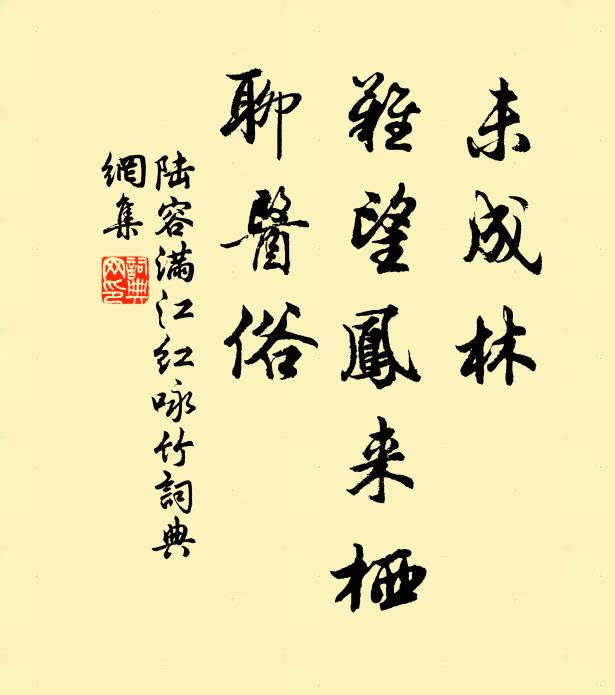 未成林
難望鳳来栖
聊醫俗
陆容满江红咏竹詞典
網集
詞典
网印